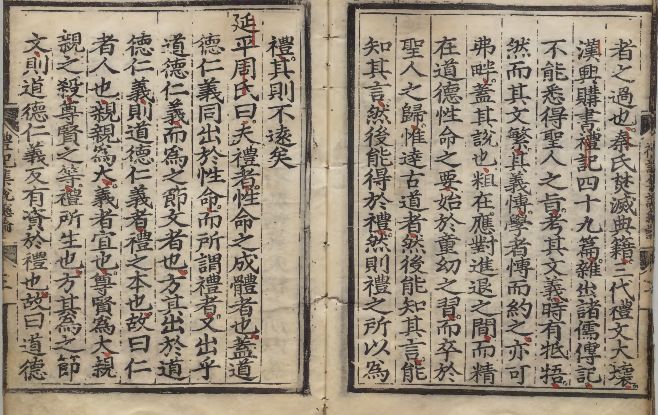 者之過也秦氏焚滅典籍三代禮文大壞
漢興購書禮記四十九篇雜出諸儒傳記
不能悉得聖人之旨考其文義時有牴牾
然而其文繁其義博學者博而約之亦可
弗畔蓋其說也粗在應對進退之間而精
在道德性命之要始於童幼之習而卒於
聖人之歸惟達古道者然後能知其言能
知其言然後能得於禮然則禮之所以為
禮其則不遠矣
延平周氏曰夫禮者性命之成體者也蓋道
德仁義同出於性命而所謂禮者又出乎
道德仁義而為之節文者也方其出於道
德仁義則道德仁義者禮之本也故曰仁
者人也親親為大義者宜也尊賢為大親
親之殺尊賢之等禮所生也方其為之節
文則道德仁義反有資於禮也故曰道德